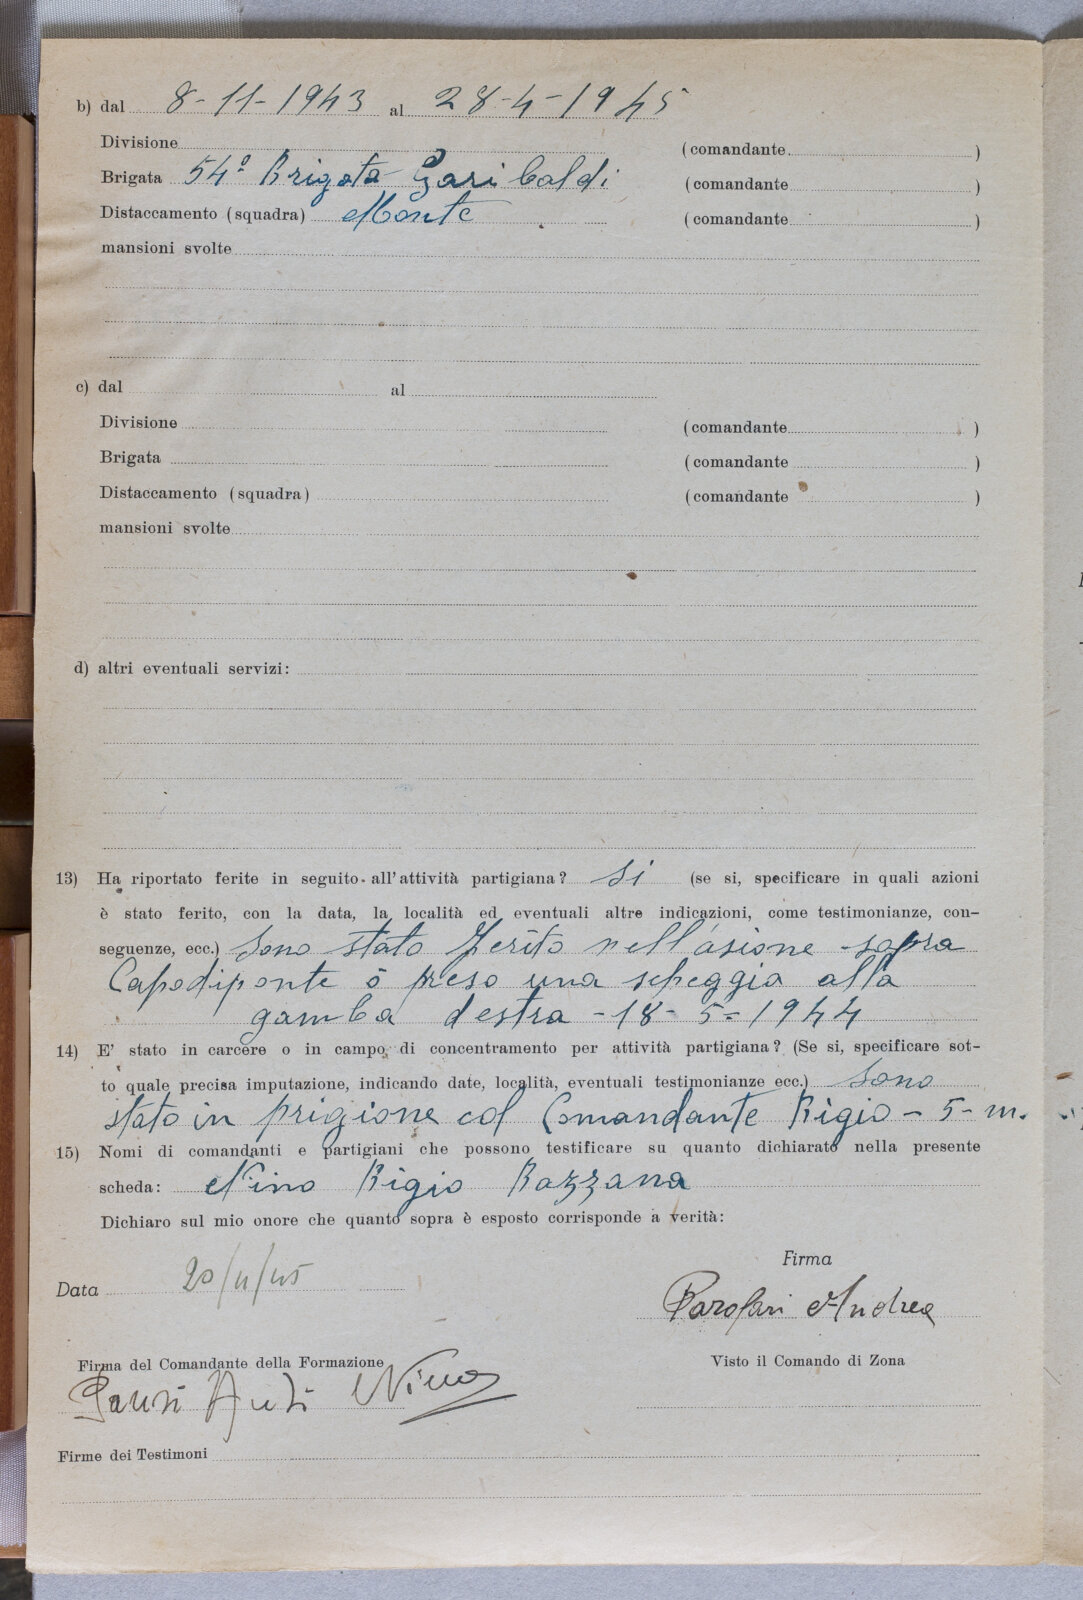 b) dal 8-11-1943 al 28-4-1945
Divisione (comandante )
Brigata 54ª Brigata Garibaldi (comandante )
Distaccamento (squadra) Monte (comandante )
mansioni svolte
c) dal al
Divisione (comandante )
Brigata (comandante )
Distaccamento (squadra) (comandante )
mansioni svolte
d) altri eventuali servizi:
13) Ha riportato ferite in seguito all'attività partigiana? Si (se si, specificare in quali azioni
è stato ferito, con la data, la località ed eventuali altre indicazioni, come testimonianze, con-
seguenze, ecc.) Sono stato ferito nell'asione sopra
Capodiponte ò preso una scheggia alla
gamba destra - 18-5-1944
14) E' stato in carcere o in campo di concentramento per attività partigiana? (Se si, specificare sot-
to quale precisa imputazione, indicando date, località, eventuali testimonianze ecc.) Sono
stato in prigione col Comandante Bigio - 5 - m.
15) Nomi di comandanti e partigiani che possono testificare su quanto dichiarato nella presente
scheda: Nino Bigio Razzana
Dichiaro sul mio onore che quanto sopra è esposto corrisponde a verità:
Firma
Data 20/11/45
Andrea
Firma del Comandante della Formazione Visto il Comando di Zona
Nino
Firme dei Testimoni